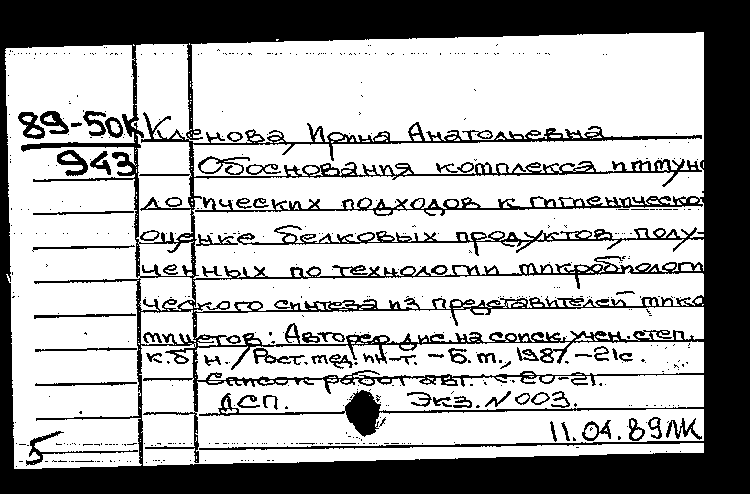 89-50К Кленова, Ирина Анатольевна
943 Обоснования комплекса иммуно
логических подходов к гигиенической
оценке белковых продуктов, полу-
ченных по технологии микробиологи
ческого синтеза из представителей мико
мицетов: Автореф. дис. на соиск. учен. степ.
к.б.н. / Рост. мед. ин-т. - Б.м., 1987. - 21с.
Список работ авт.: с. 20-21.
ДСП. Экз. N 003.
11.04.89 ЛК
5